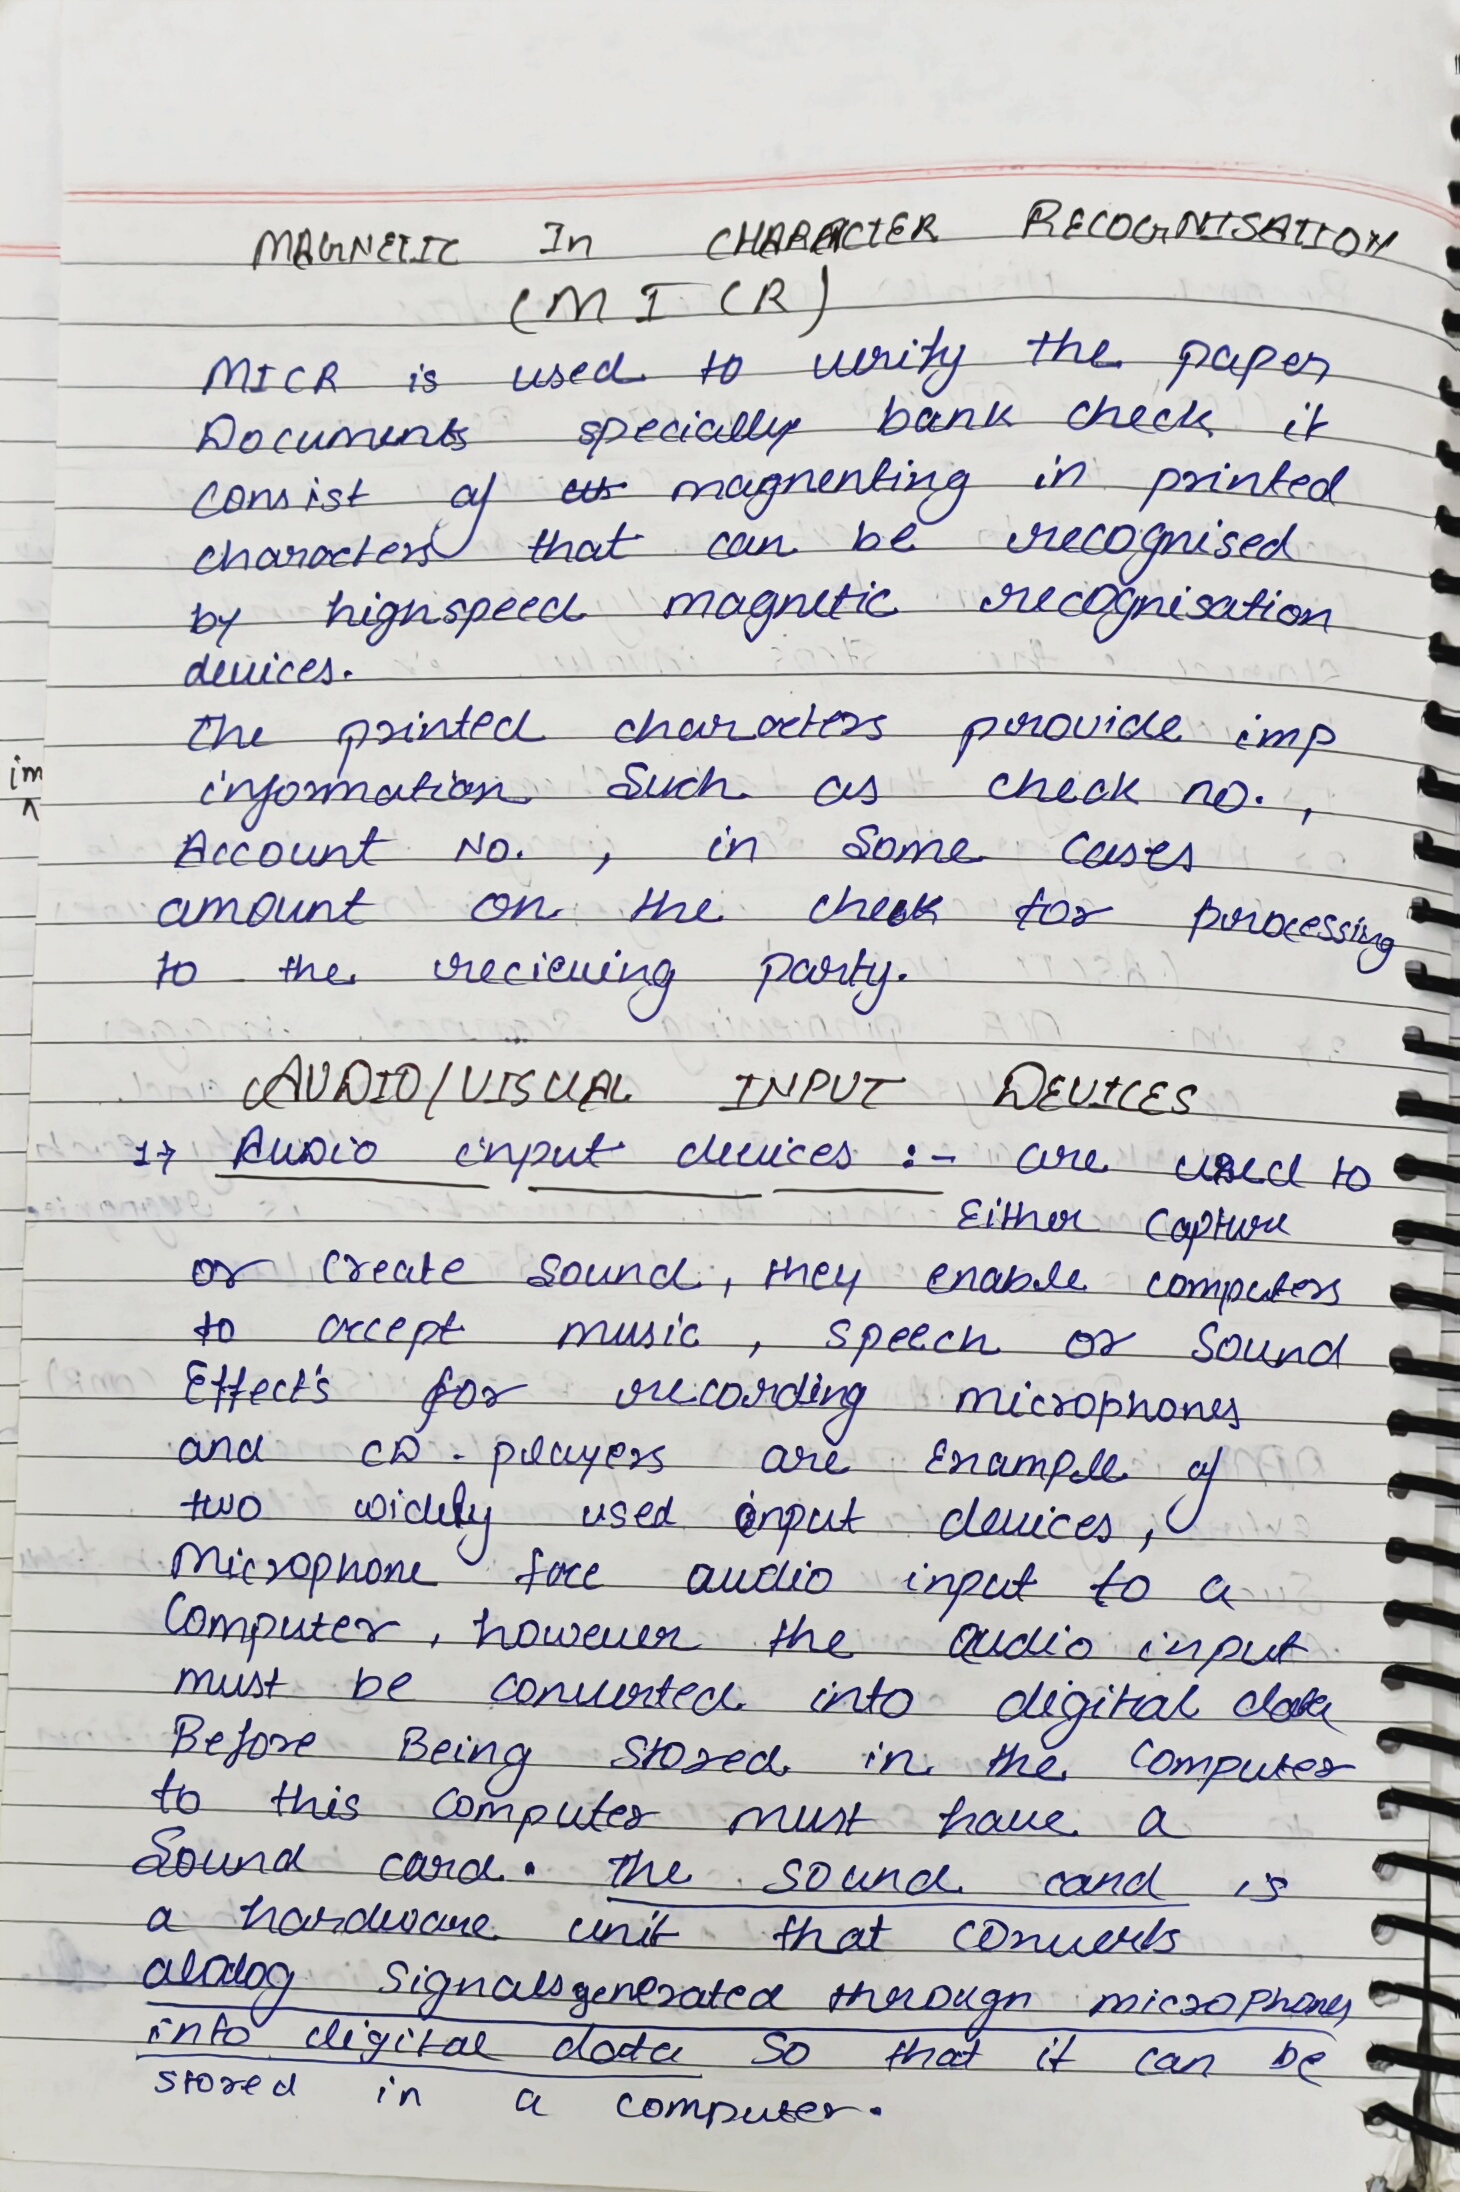 MAGNETIC In CHARACTER RECOGNISATION
(MICR)
MICR is used to verify the paper
Documents specially bank check it
consist of magnenting in printed
characters that can be recognised
by highspeed magnetic recognisation
devices.
The printed characters provide imp
information Such as check no.,
Account No., in Some Cases
amount on the check for processing
to the recieving party.
im
^
AUDIO/VISUAL INPUT DEVICES
1→ Audio input devices :- are used to
Either Capture
or Create Sound, they enable computers
to accept music, speech or Sound
Effect's for recording microphones
and CD-players are Example of
two widely used input devices,
Microphone face audio input to a
Computer, however the audio input
must be converted into digital data
Before Being Stored in the Computer
to this Computer must have a
Sound card. The sound card is
a hardware unit that converts
alodog Signals generated through microphones
into digital data So that it can be
stored in a computer.